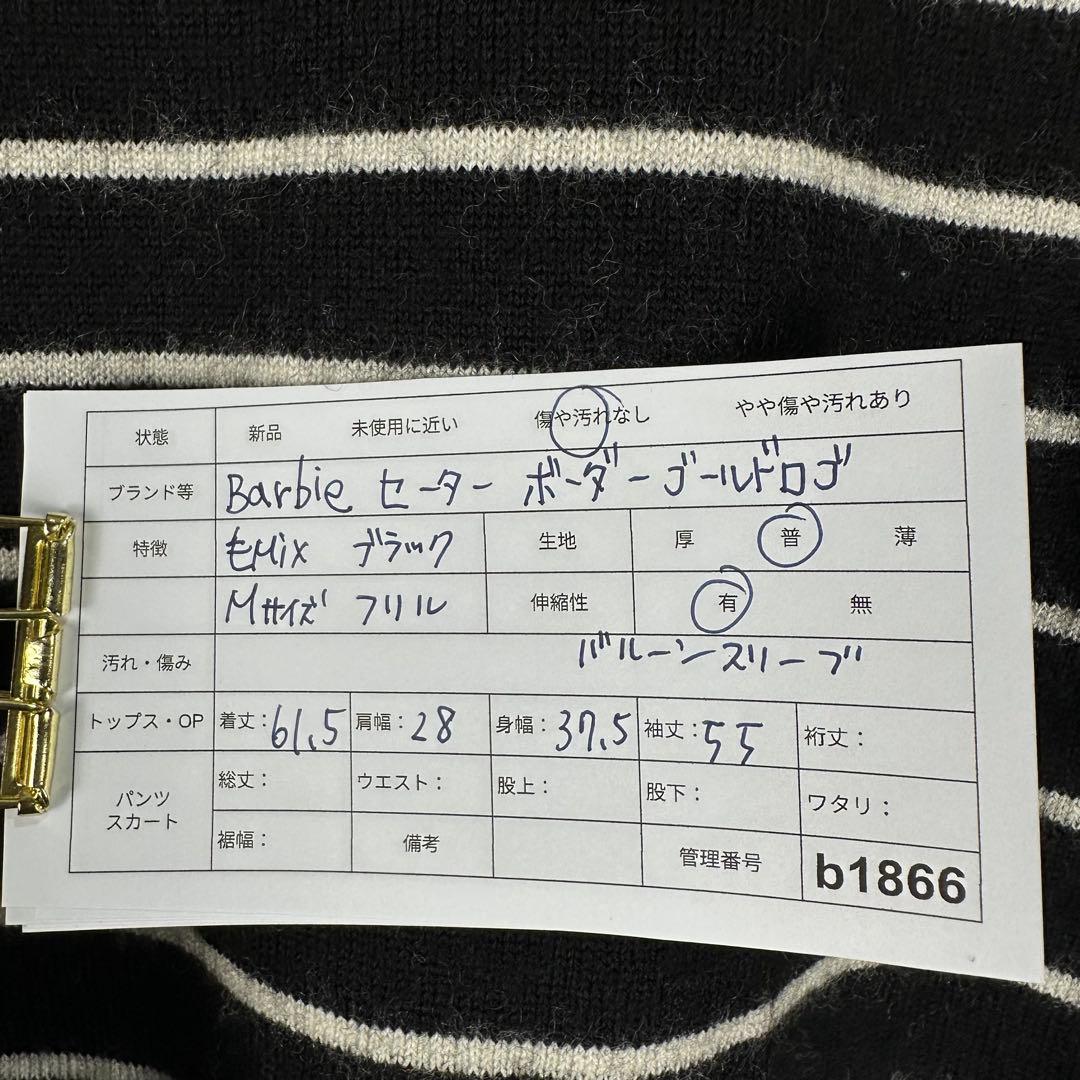 状態 新品 未使用に近い 傷や汚れなし やや傷や汚れあり
ブランド等 Barbie セーター ボーダーゴールドロゴ
特徴 毛Mix ブラック 生地 厚 普 薄
Mサイズ フリル 伸縮性 有 無
汚れ・傷み バルーンスリーブ
トップス・OP 着丈:61.5 肩幅:28 身幅:37.5 袖丈:55 裄丈:
パンツ スカート 総丈: ウエスト: 股上: 股下: ワタリ:
裾幅: 備考 管理番号 b1866